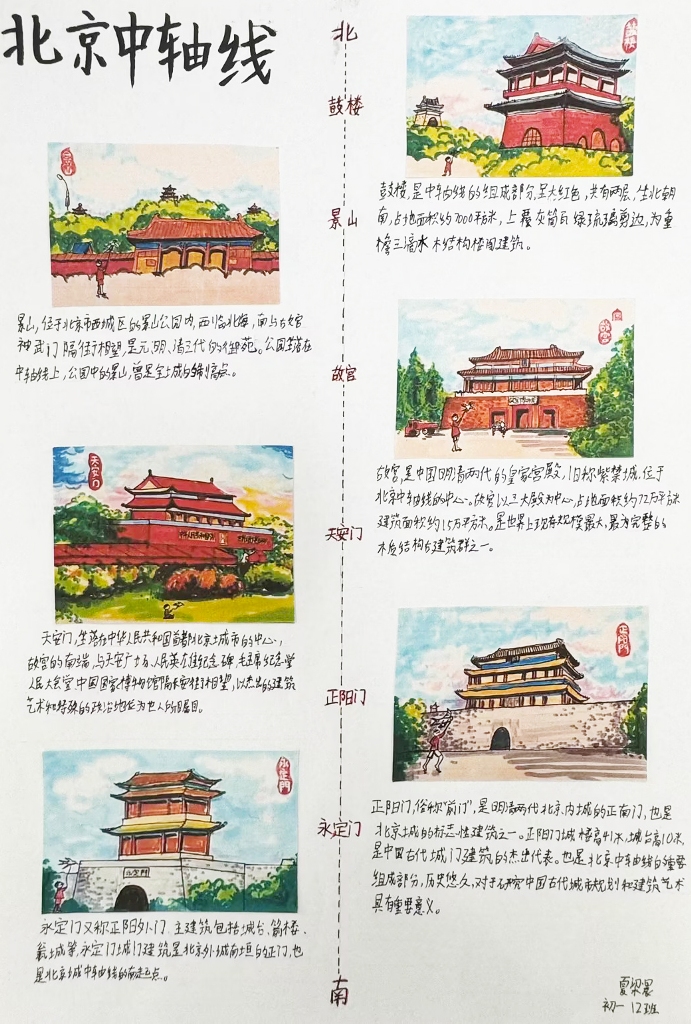 北京中轴线
北
鼓楼
景山
故宫
天安门
正阳门
永定门
南
鼓楼
鼓楼,是中轴线的组成部分,呈大红色,共有两层,坐北朝
南,占地面积约7000平方米,上覆灰筒瓦绿琉璃剪边,为重
檐三滴水木结构楼阁建筑。
景山
景山,位于北京市西城区的景山公园内,西临北海,南与故宫
神武门隔街相望,是元、明、清三代的御苑。公园坐落在
中轴线上,公园中的景山,曾是全城的制高点。
故宫
故宫,是中国明清两代的皇家宫殿,旧称紫禁城,位于
北京中轴线的中心。故宫以三大殿为中心,占地面积约72万平方米
建筑面积约15万平方米。是世界上现存规模最大,最为完整的
木质结构古建筑群之一。
天安门
天安门,坐落在中华人民共和国首都北京城市的中心,
故宫的南端,与天安门广场、人民英雄纪念碑、毛主席纪念堂
人民大会堂、中国国家博物馆隔长安街相望,以杰出的建筑
艺术和特殊的政治地位为世人所瞩目。
正阳门
正阳门,俗称"前门",是明清两代北京内城的正南门,也是
北京城的标志性建筑之一。正阳门城楼高41米,城台高10米
是中国古代城门建筑的杰出代表。也是北京中轴线的重要
组成部分,历史悠久,对于研究中国古代城市规划和建筑艺术
具有重要意义。
永定門
永定門
永定门又称正阳外门、主建筑包括城台、箭楼、
瓮城等,永定门城门建筑是北京外城南垣的正门,也
是北京城中轴线的南起点。
初一 12班